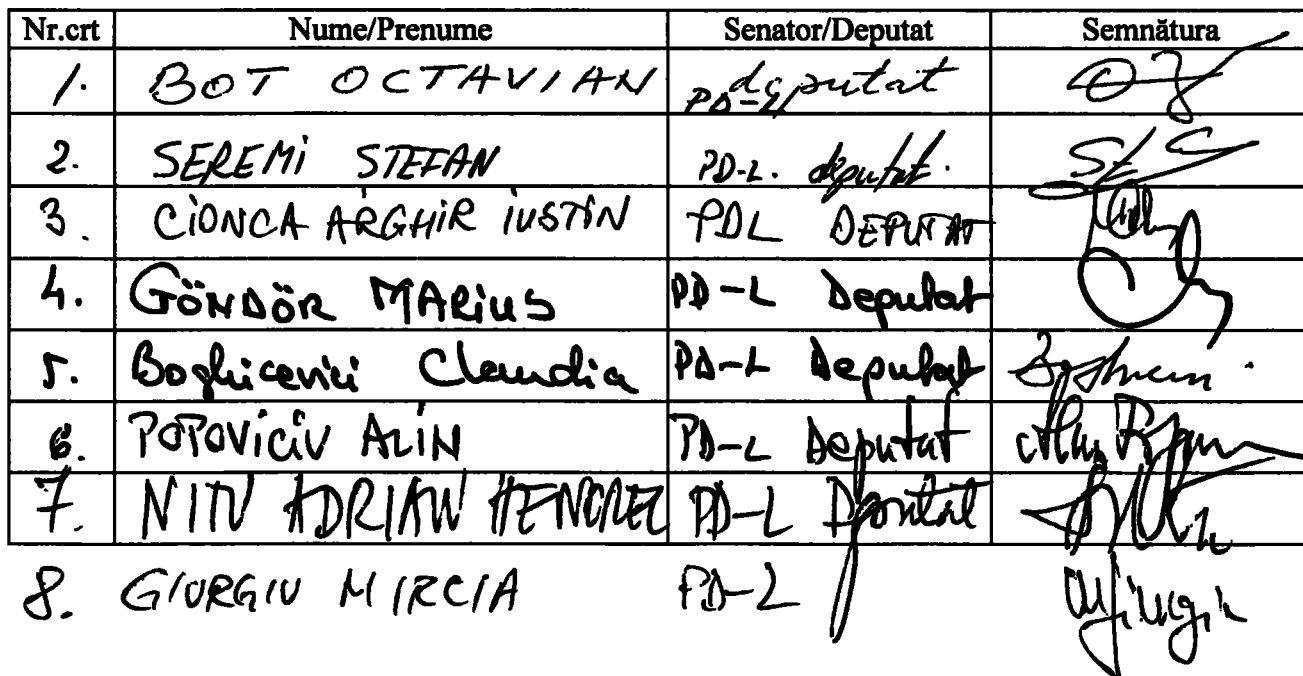 Nr.crt Nume/Prenume Senator/Deputat Semnătura
1. BOT OCTAVIAN PD-L deputat
2. SEREMI STEFAN PD-L. deputat.
3. CIONCA ARGHIR IUSTIN PDL DEPUTAT
4. GÖNDÖR MARIUS PD-L Deputat
5. Boghicevici Claudia PD-L Deputat
6. POPOVICIU ALIN PD-L Deputat
7. NITU ADRIAN PD-L Deputat
8. GIURGIU MIRCIA PD-L